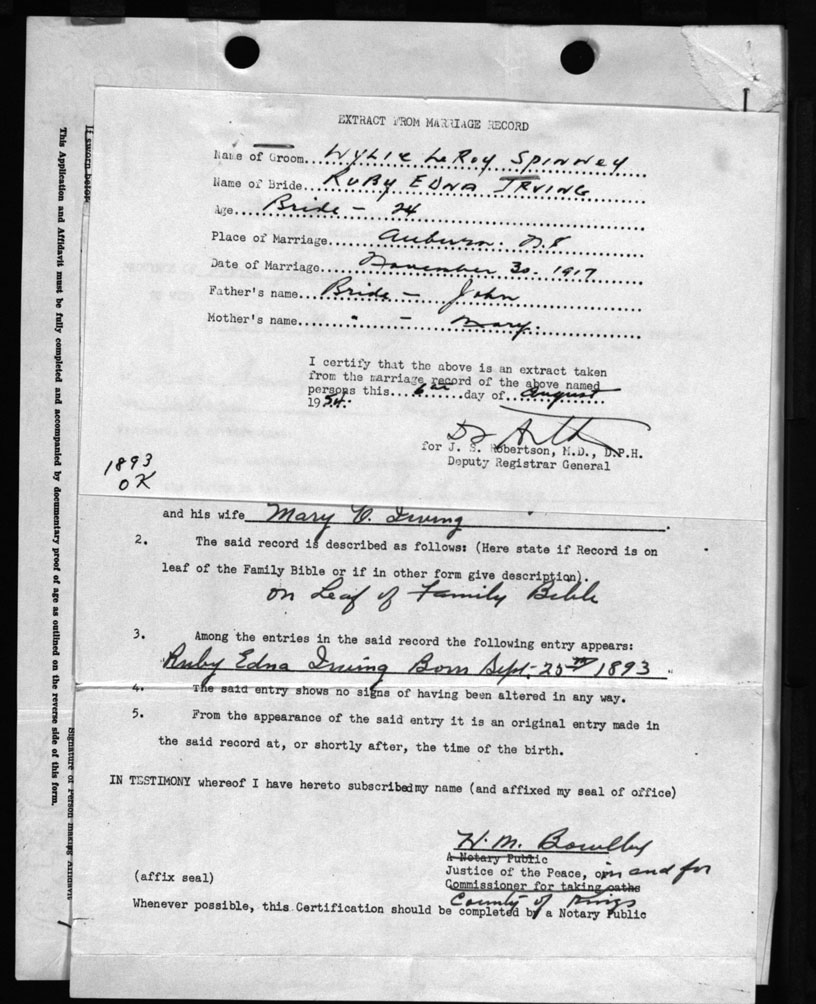 EXTRACT FROM MARRIAGE RECORD
Name of Groom... Wylie LeRoy Spinney
Name of Bride... Ruby Edna Irving
Age... Bride - 24
Place of Marriage... Auburn. N.S
Date of Marriage... November 30. 1917
Father's name... Bride - John
Mother's name... " - Mary.
I certify that the above is an extract taken
from the marriage record of the above named
persons this... 6th ...day of... August
1954.
for J. S. Robertson, M.D., D.P.H.
Deputy Registrar General
1893
OK
and his wife Mary O. Irving.
2. The said record is described as follows: (Here state if Record is on
leaf of the Family Bible or if in other form give description).
on Leaf of Family Bible
3. Among the entries in the said record the following entry appears:
Ruby Edna Irving Born Sept. 25th 1893.
4. The said entry shows no signs of having been altered in any way.
5. From the appearance of the said entry it is an original entry made in
the said record at, or shortly after, the time of the birth.
IN TESTIMONY whereof I have hereto subscribed my name (and affixed my seal of office)
H. M. Bowlby
A Notary Public
Justice of the Peace, or in and for
Commissioner for taking oaths
County of Kings
(affix seal)
Whenever possible, this Certification should be completed by a Notary Public
If sworn before
This Application and Affidavit must be fully completed and accompanied by documentary proof of age as outlined on the reverse side of this form.
Signature of Person making Affidavit